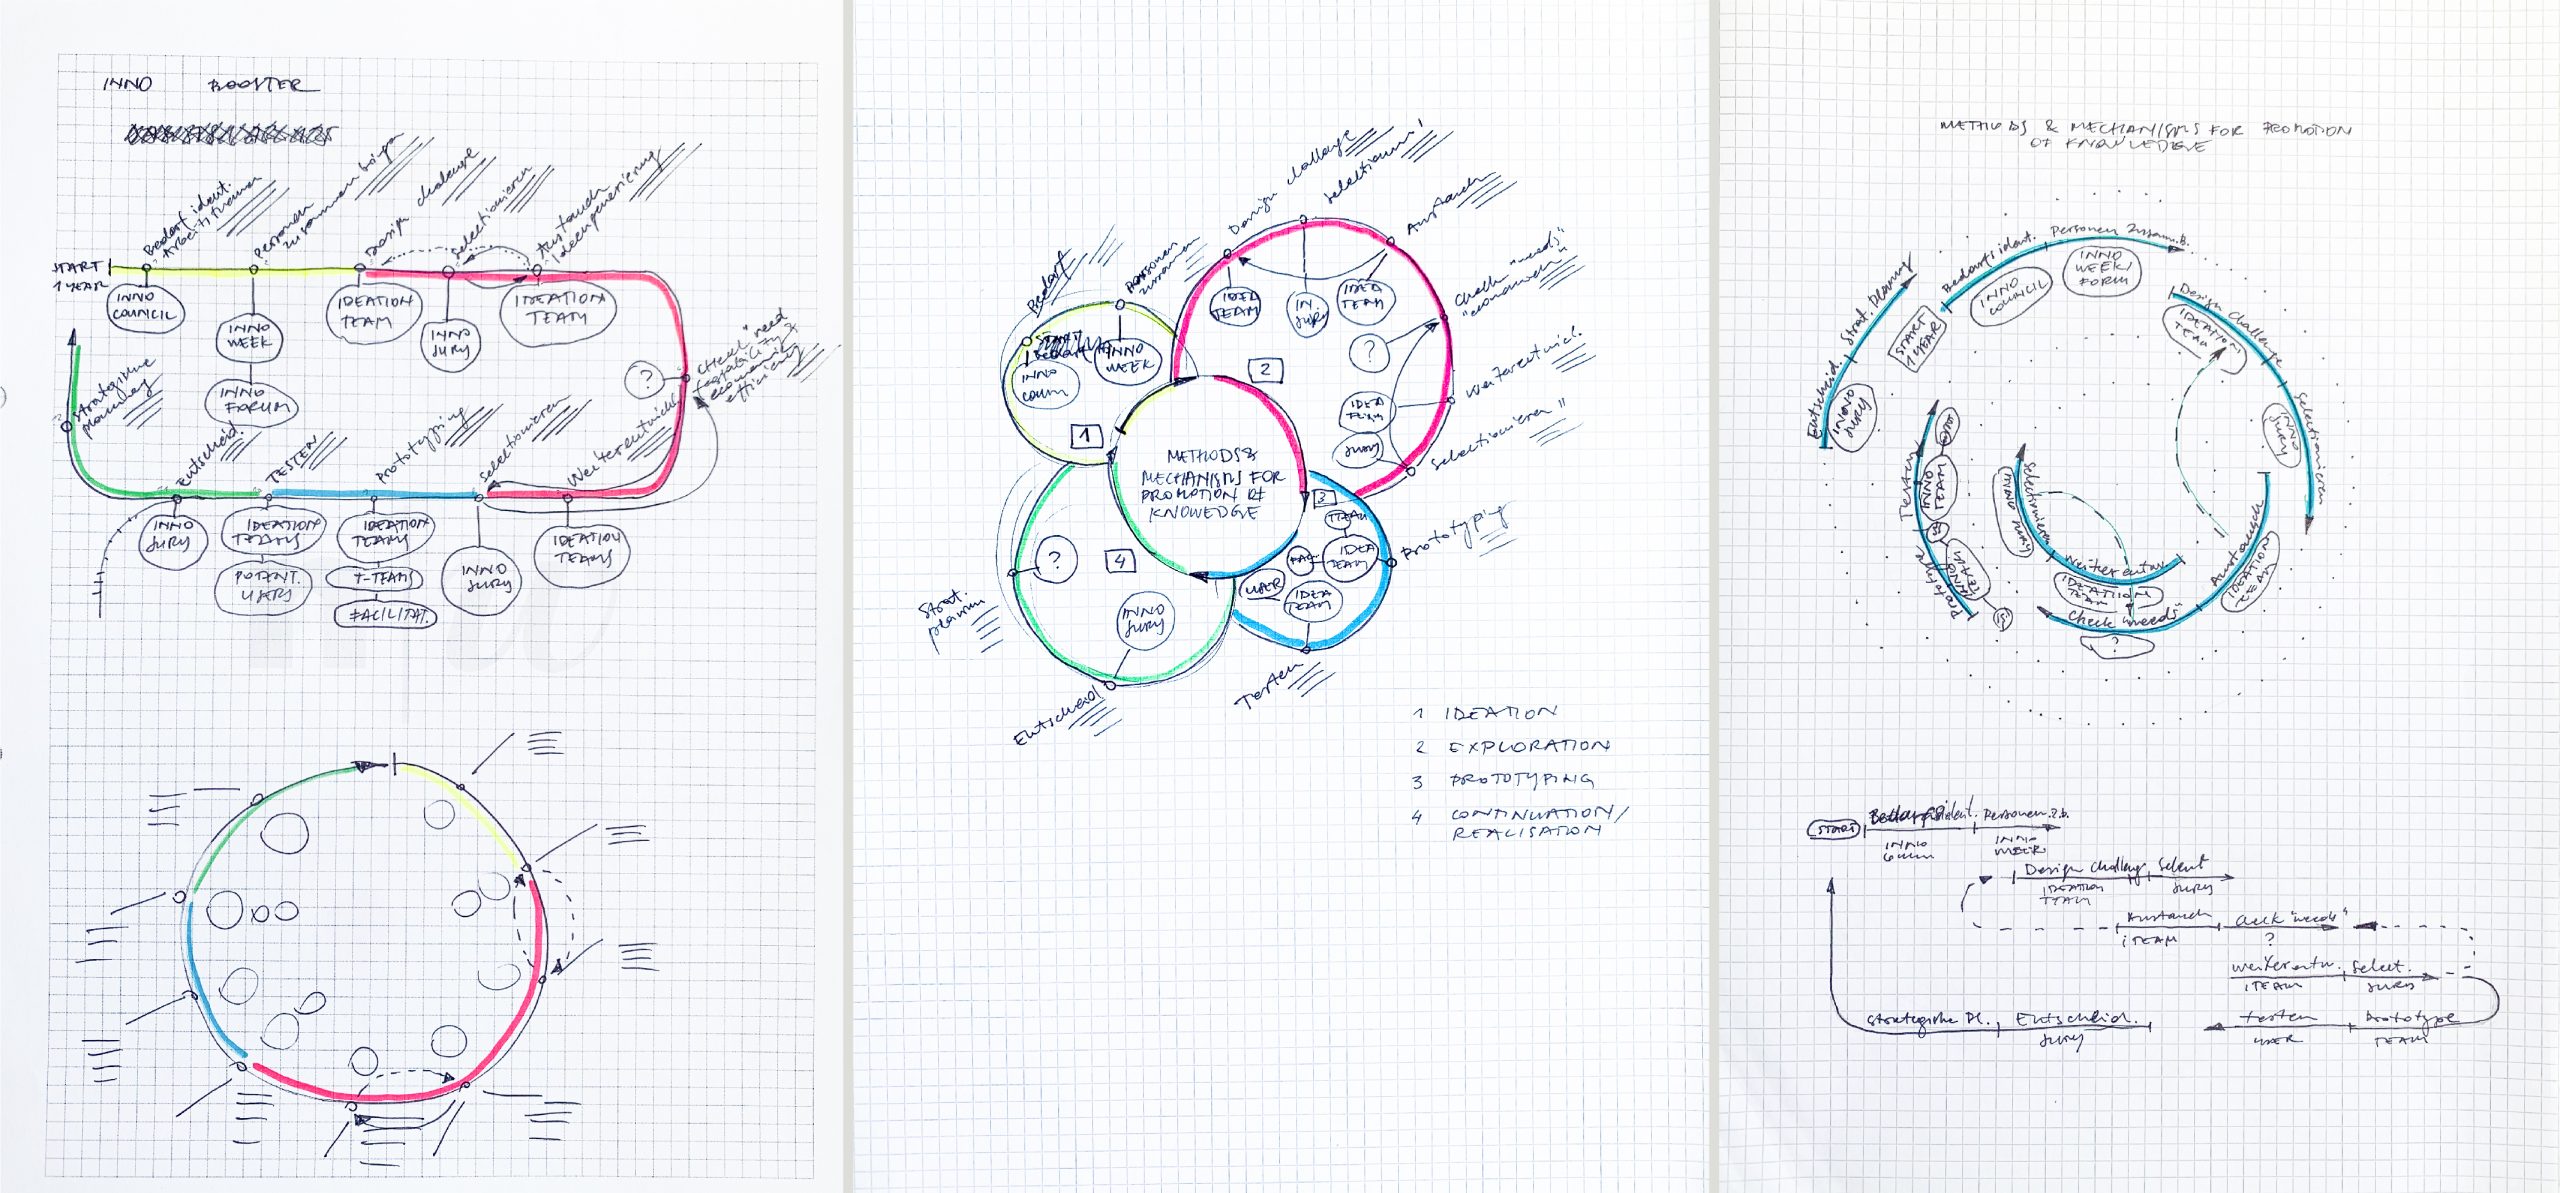 INNO BOOSTER
Bedarf ident.
Arbeitsthemen
Personen
zusammenbringen
Design challenge
Selectionieren
Austausch
Ideengenerierung
START
1 YEAR
INNO
COUNCIL
INNO
WEEK
INNO
FORUM
IDEATION
TEAM
INNO
JURY
IDEATION
TEAM
?
Check "need
economicity
efficiency
Strategische
planung
Entscheid.
TESTEN
Prototyping
Selectionieren
Weiterentwickl.
INNO
JURY
IDEATION
TEAMS
POTENT.
USERS
IDEATION
TEAMS
T-TEAMS
FACILITAT.
INNO
JURY
IDEATION
TEAMS
Bedarf
Personen
zusamm
Design challenge
Selectionieren
Austausch
Check "needs"
Weiterentwickl.
Selectionieren
START
INNO
COUN
INNO
WEEK
IDEA
TEAM
IN
JURY
IDEA
TEAM
?
IDEA
TEAM
JURY
1
2
3
4
METHODS &
MECHANISMS FOR
PROMOTION OF
KNOWEDGE
TEAM
IDEA
TEAM
FAC
USER
IDEA
TEAM
Prototyping
Testen
?
INNO
JURY
Strat.
planun
Entscheid
1 IDEATION
2 EXPLORATION
3 PROTOTYPING
4 CONTINUATION/
REALISATION
METHODS & MECHANISMS FOR PROMOTION
OF KNOWLEDGE
Entscheid. Strat. Planung
INNO
JURY
START
1 YEAR
Bedarfsident. Personen Zusam.B.
INNO
COUNCIL
INNO
WEEK/
FORUM
Design Challenge Selectionieren
IDEATION
TEAM
INNO
JURY
Austausch
IDEATION
TEAM
Check "needs"
?
Weiterentw. Selectionieren
IDEATION
TEAM
INNO JURY
Prototype Testen
INNO
TEAM
INNO
TEAM
START
Bedarfsident. Personen z.b.
INNO
COUN
INNO
WEEK
Design Challeng Select
IDEATION
TEAM
JURY
Austausch Check "needs"
iTEAM
?
weiterentw. Select.
iTEAM
JURY
Strategische Pl. Entscheid. testen prototype
JURY
USER
TEAM